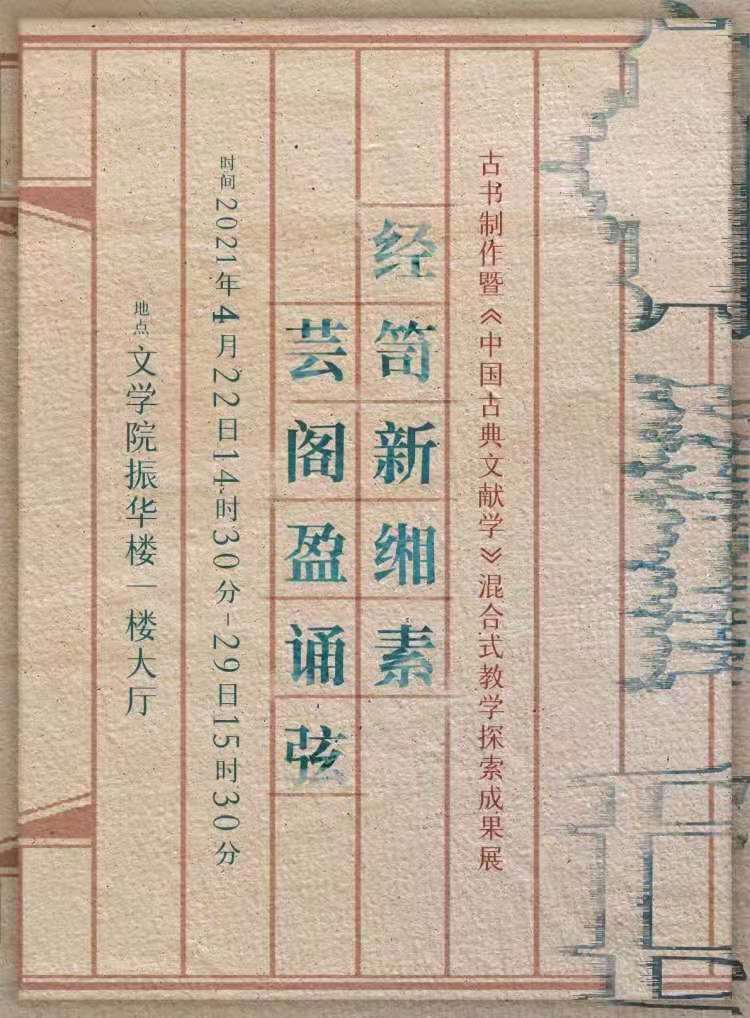 古书制作暨《中国古典文献学》混合式教学探索成果展
经笥新缃素
芸阁盈诵弦
时间 2021年4月22日14时30分-29日15时30分
地点 文学院振华楼一楼大厅